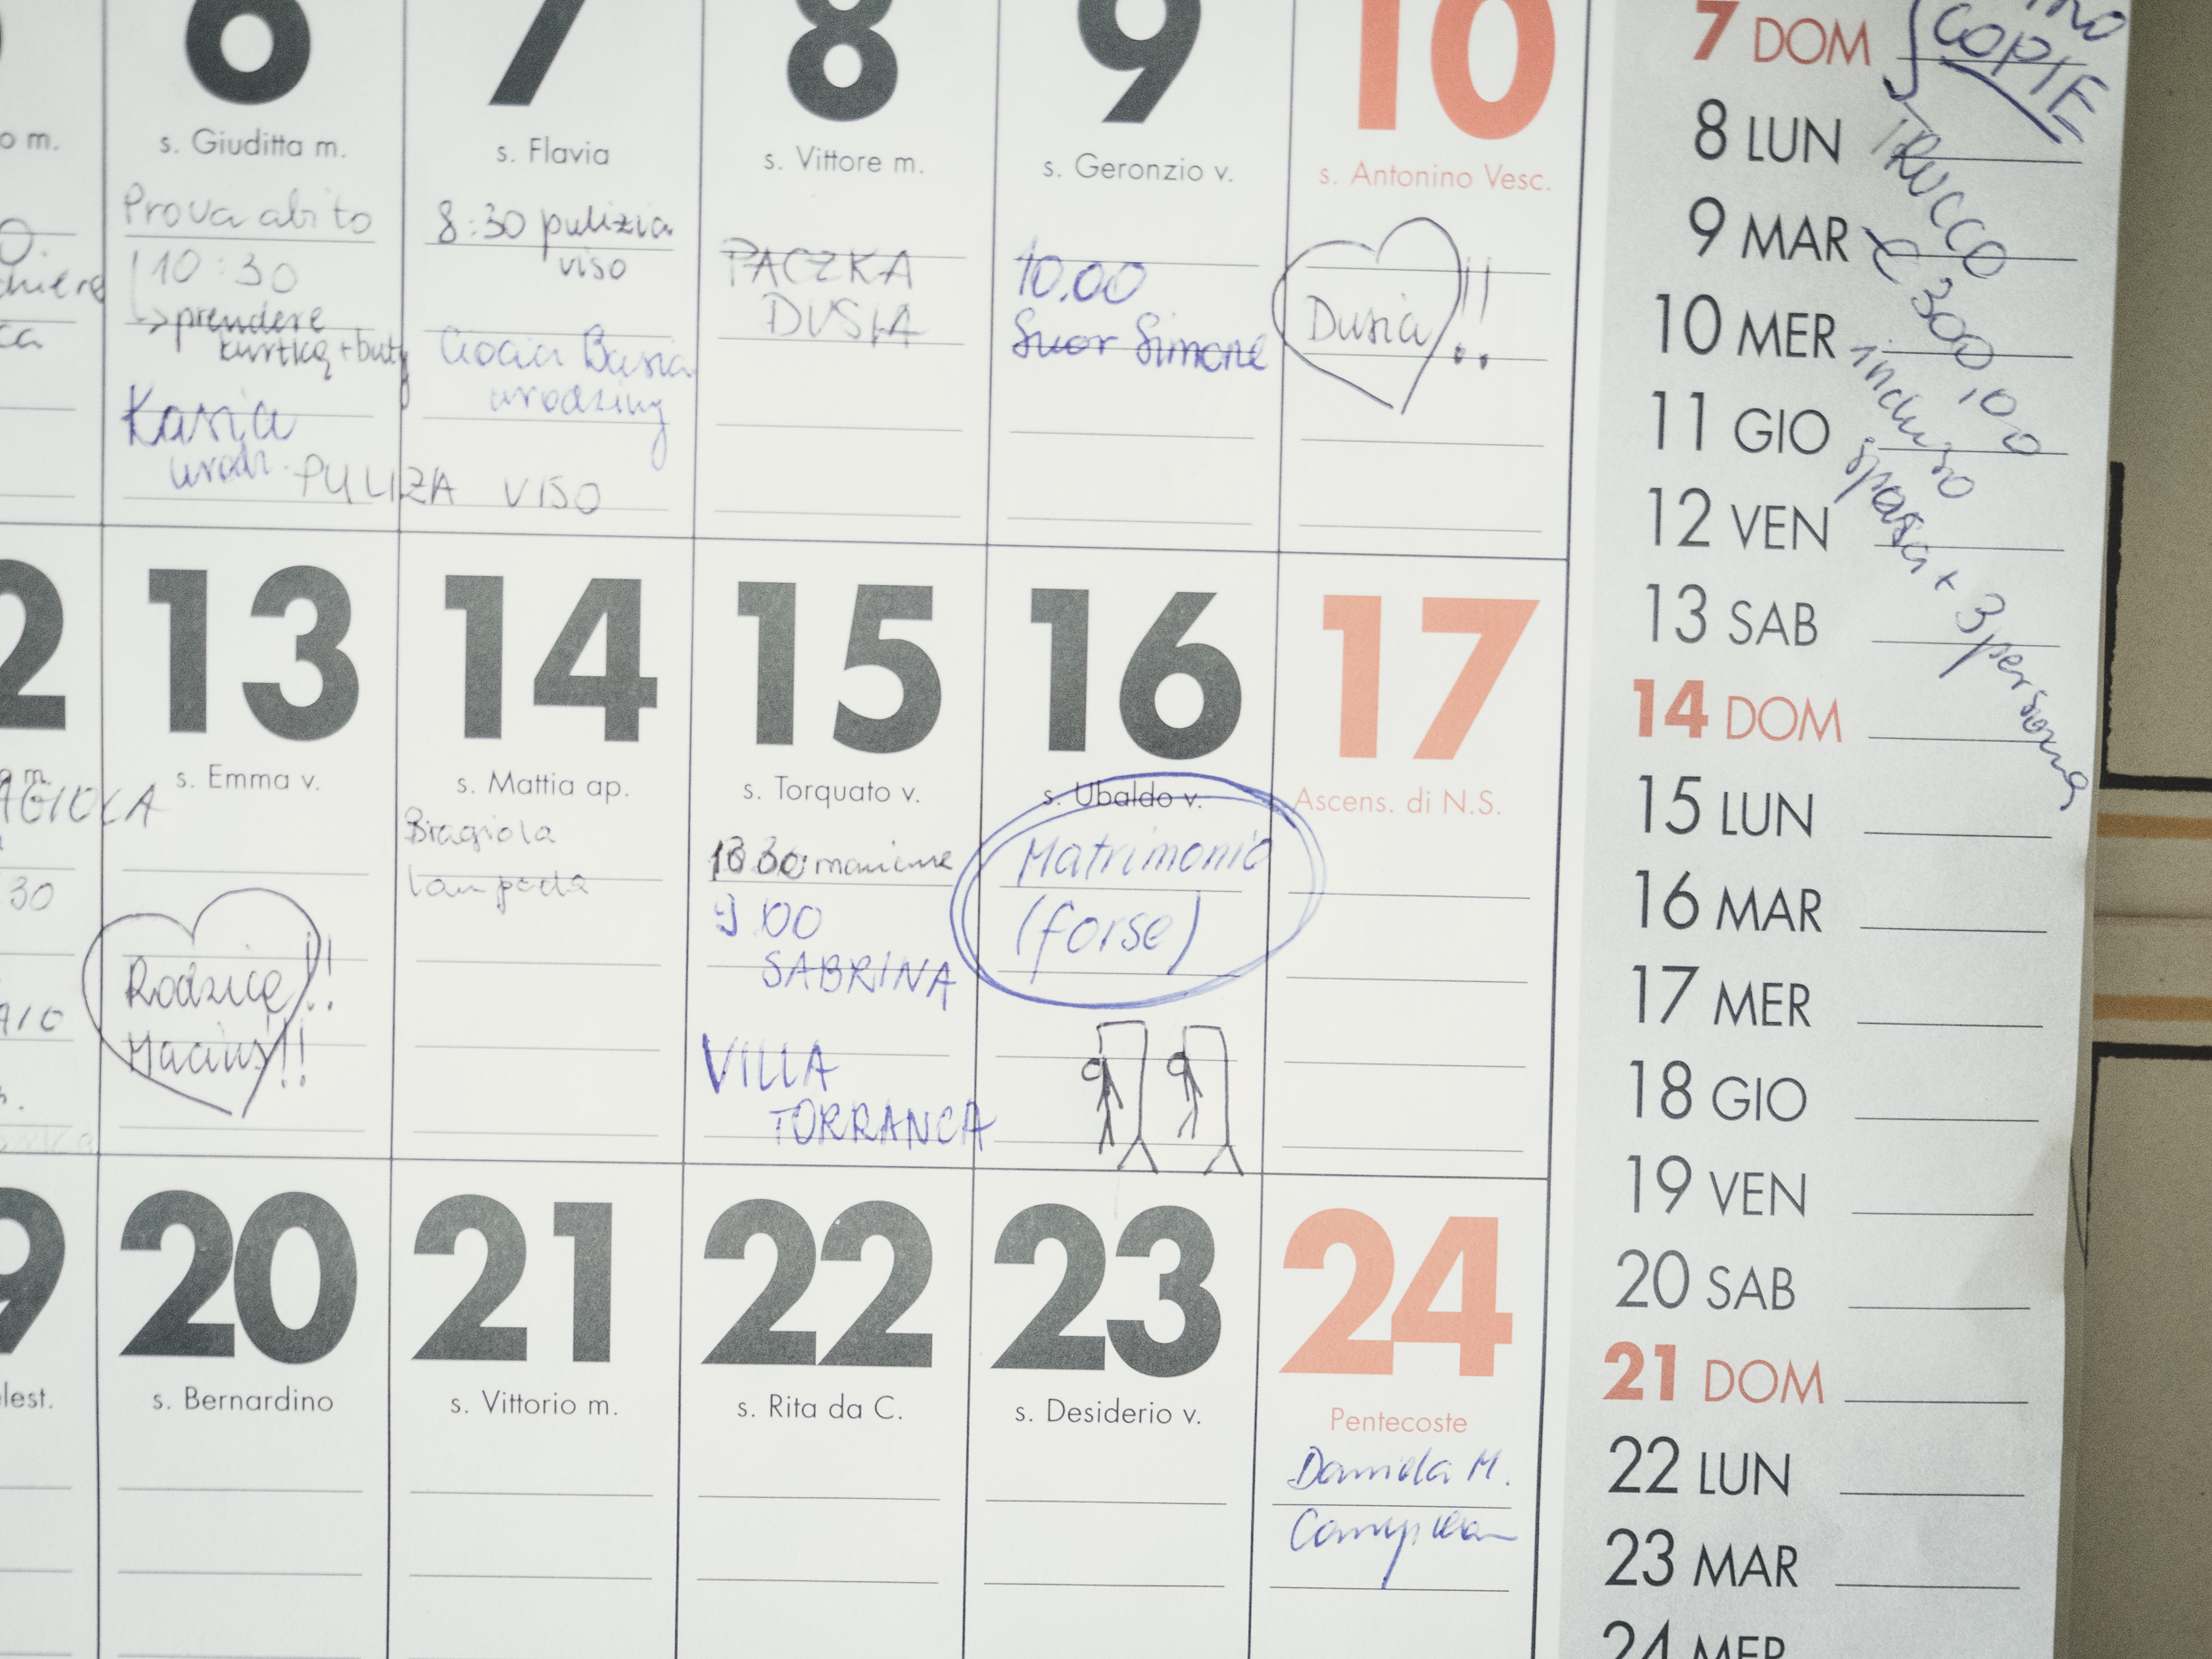 6
7
8
9
10
o m.
s. Giuditta m.
s. Flavia
s. Vittore m.
s. Geronzio v.
s. Antonino Vesc.
Prova abito
10:30
prendere
kurtkę + buty
Kasia
urodz.
PULIZA VISO
8:30 pulizia
viso
Ciocia Basia
urodziny
PACZKA
DUSIA
10.00
Suor Simone
Dusia!!
ca
2
13
14
15
16
17
s. Emma v.
s. Mattia ap.
s. Torquato v.
s. Ubaldo v.
Ascens. di N.S.
AGIOLA
30
Rodzice!!
Maciuś!!
Bragiola
lampada
manicure
9.00
SABRINA
VILLA
TORRANCA
Matrimonio
(forse)
9
20
21
22
23
24
lest.
s. Bernardino
s. Vittorio m.
s. Rita da C.
s. Desiderio v.
Pentecoste
Daniela M.
7 DOM
8 LUN
9 MAR
10 MER
11 GIO
12 VEN
13 SAB
14 DOM
15 LUN
16 MAR
17 MER
18 GIO
19 VEN
20 SAB
21 DOM
22 LUN
23 MAR
24 MER
COPIE
TRUCCO
€ 300,00
incluso
sposa + 3 persone